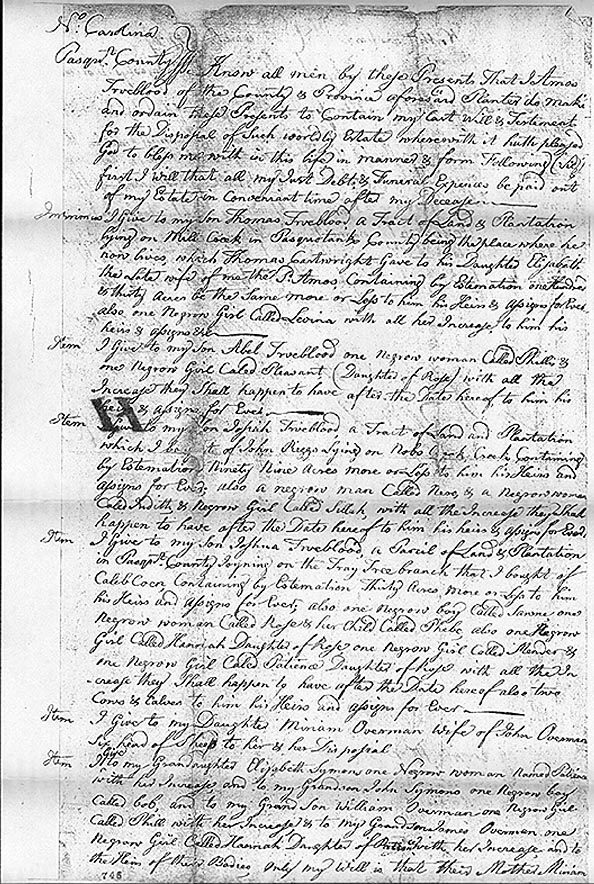 No Carolina
Pasqnk County Ss Know all men by these Presents That I Amos
Trueblood of the County & Province aforesaid Planter do make
and ordain these Presents to Contain my Last Will & Testement
for the Disposal of Such worldly Estate wherewith it hath pleased
God to bless me with in this life in manner & form Following (Viz)
first I will that all my Just Debts & Funeral Expences be paid out
of my Estate in Convenant time after my Decease
I give to my Son Thomas Trueblood a Tract of Land & Plantation
lying on Mill Creek in Pasquotank County being the place where he
now lives, which Thomas Cartwright Gave to his Daughter Elizabeth
the Late wife of me the Sd Amos Containing by Estemation one Hundred
& thirty Acres be the Same more or Less to him his Heirs & assigns for Ever
also one Negrow Girl Called Levina with all her Increase to him his
heirs & assigns &c
Item I Give to my Son Abel Trueblood one Negrow woman Called Phillis &
one Negrow Girl Caled Pleasant (Daughter of Rose) with all the
Increase they Shall happen to have after the Date hereof, to him his
heirs & assigns for Ever
Item I give to my Son Josiah Trueblood a Tract of Land and Plantation
which I bought of John Riggs Lying on Nobs Crook Creek Containing
by Estemation Ninety Nine Acres more or Less to him his Heirs and
assigns for Ever, also a negrow man Called & a Negrow woman
Caled Judith & Negrow Girl Called Sillah with all the Increase they Shall
happen to have after the Date hereof to him his heirs & assigns for Ever
Item I Give to my Son Joshua Trueblood, a Parcil of Land & Plantation
in Pasqnk County Joyning on the Tray Tree branch that I bought of
Caleb Coen Containing by Estemation Thirty Acres more or Less to him
his Heirs and assigns for Ever, also one Negrow boy Called one
Negrow woman Called Rose & her Child Called Phebe, also one Negrow
Girl Called Hannah Daughter of Rose one Negrow Girl Called Mander &
one Negrow Girl Caled Patience Daughter of Rose with all the In
crease they Shall happen to have after the Date hereof also two
Cows & Calves to him his Heirs and assigns for Ever
Item I Give to my Daughter Miriam Overman Wife of John Overman
Six head of Sheep to her & her Disposial
Item I Give to my Grandaughter Elizabeth Symons one Negrow woman Named
with her Increase and to my Grandson John Symons one Negrow boy
Called bob, and to my Grand Son William Overman one Negrow Girl
Called Phill with her Increase & to my Grandson James Overman one
Negrow Girl Called Hannah Daughter of with her Increase and to
the Heirs of their Bodies only my Will is that their Mother Miriam